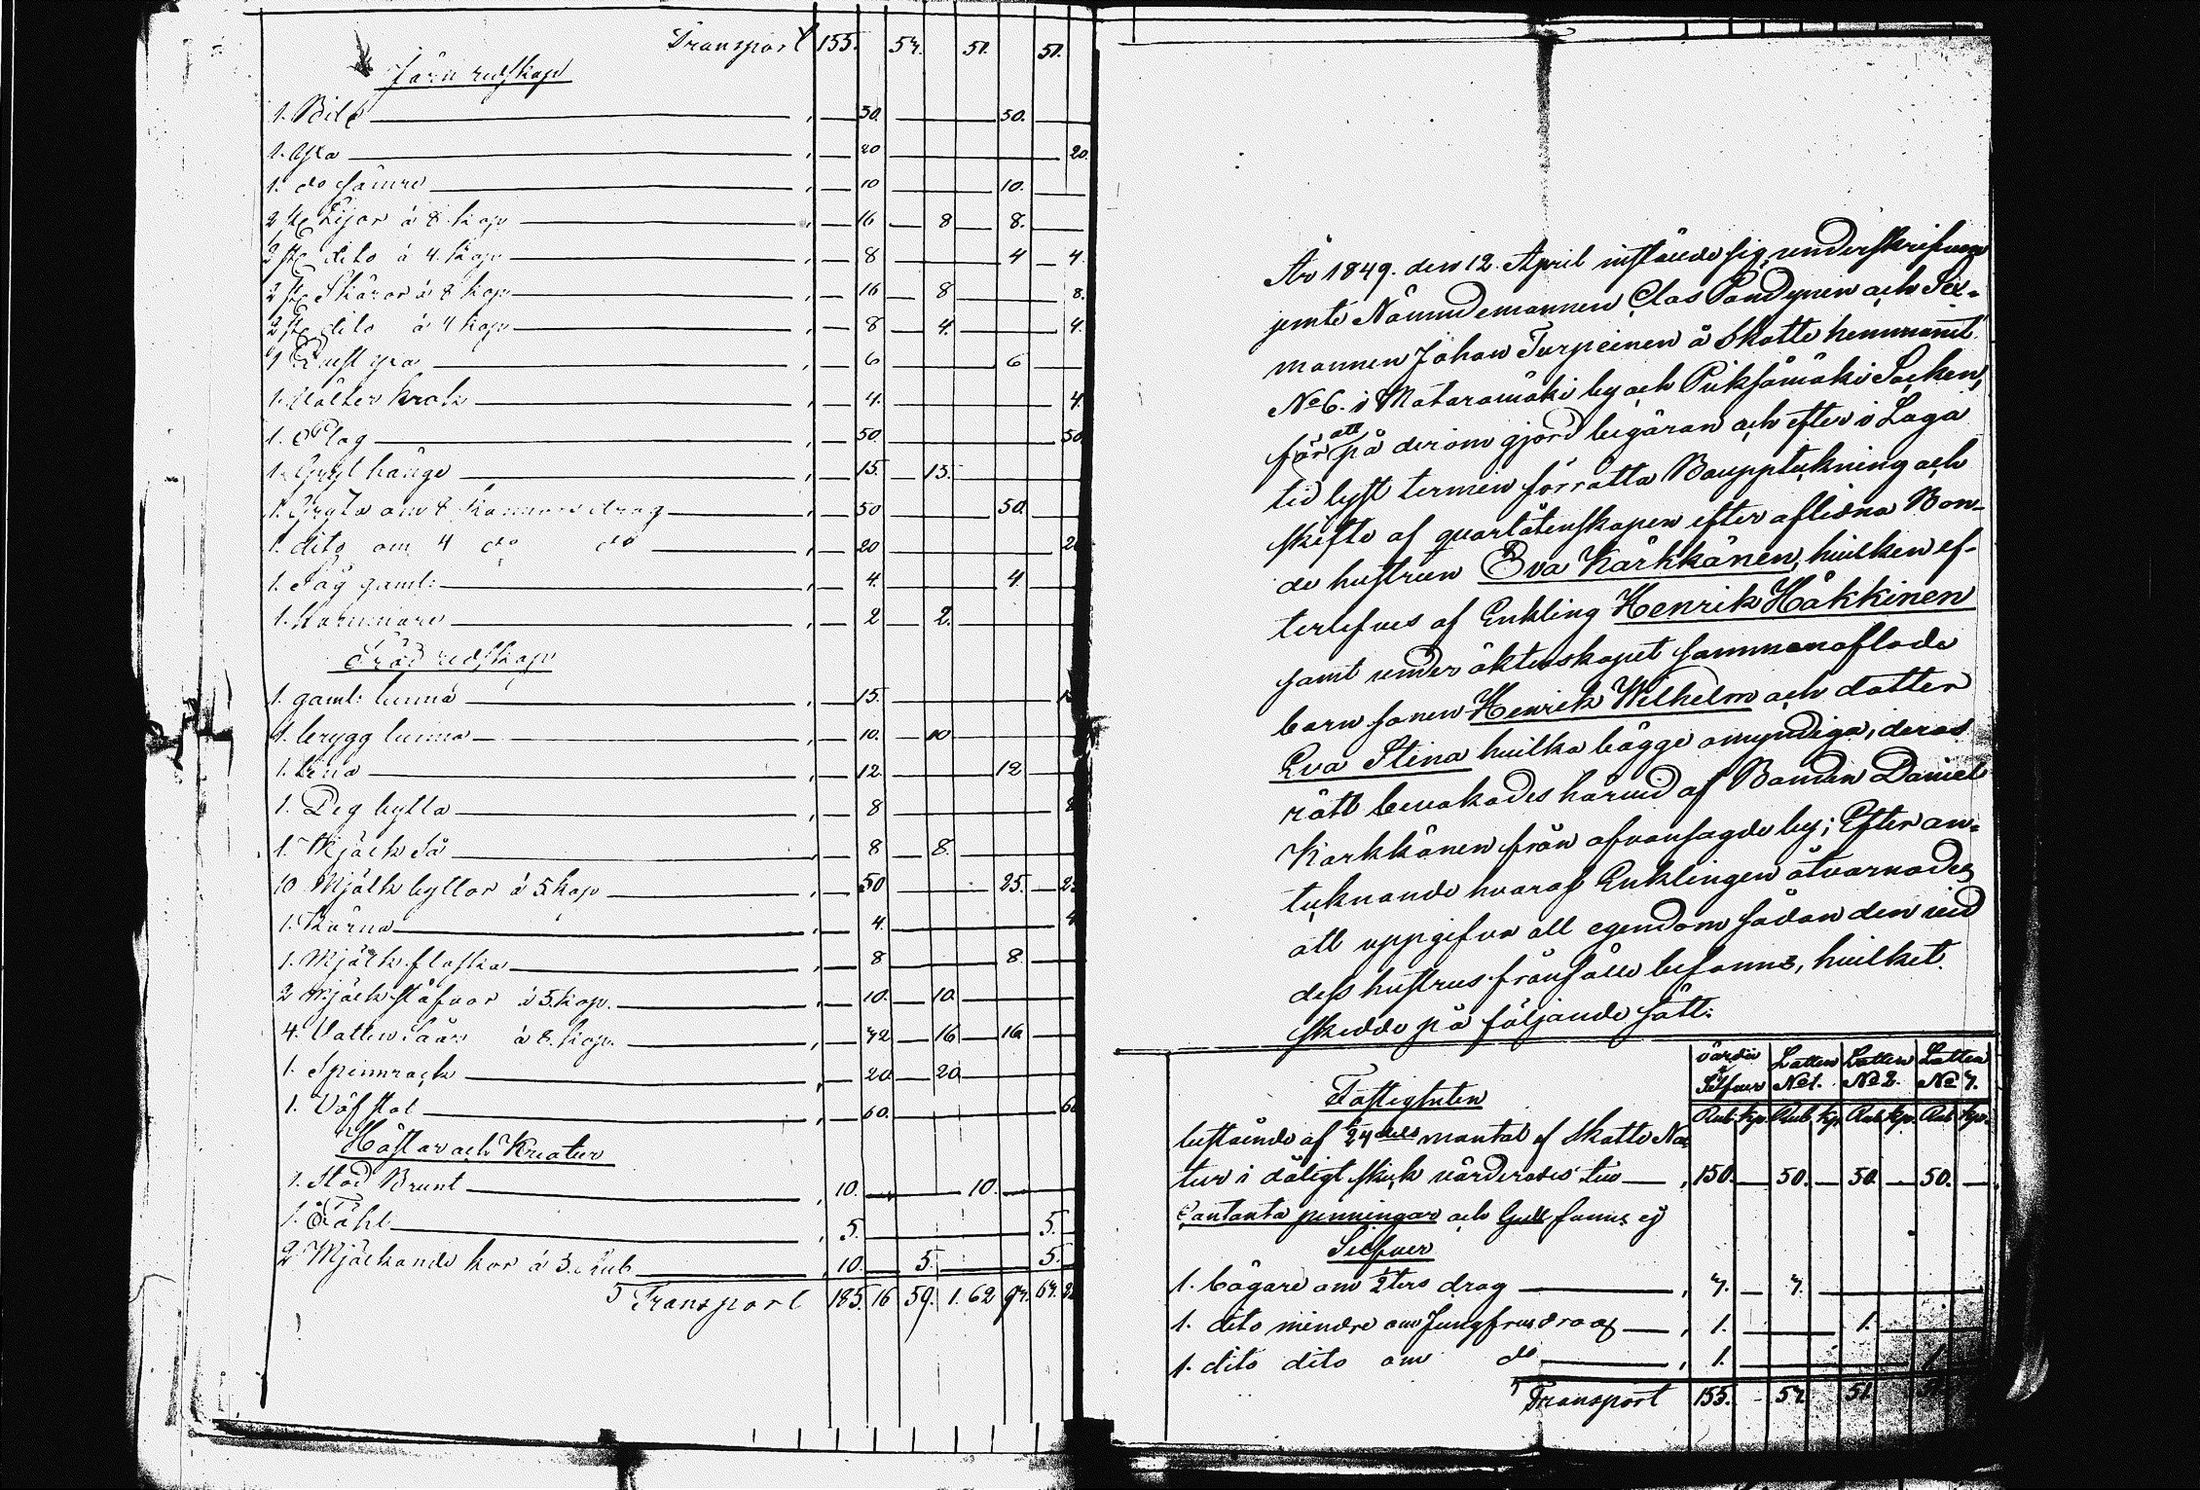 Transport 155. 57. 51. 51.
Järn redskap
1. Bila , 50. 50.
1. Yxa , 20 20.
1. do sämre , 10 10.
2 st Lijor á 8. kop , 16 8 8.
2 st dito á 4. kop , 8 4 4.
2 st Skäror á 8 kop , 16 8 8.
2 st dito á 4 kop , 8 4. 4.
1 yxa , 6 6
1. krok , 4. 4
1. Plog , 50. 50
1. Gryt hänge , 15 15.
1. Gryta om 8 kannors drag , 50 50.
1. dito om 4 do do , 20 20
1. Såg gaml: , 4. 4.
1. Hammare , 2 2.
Träd redskap
1. gaml: tunna , 15. 15
1. brygg tunna , 10. 10
1. tina , 12. 12
1. Deg bytta , 8 8
1. Mjölk Så , 8 8.
10 Mjölk byttor á 5 kop , 50 25. 25
1. Kärna , 4. 4
1. Mjölk flaska , 8 8.
2 Mjölk stäfvor á 5. kop. , 10. 10.
4. Vatten Såar á 8. kop. , 32 16 16
1. Spinnrock , 20 20
1. Väfstol , 60. 60
Hästar och Kreatur
1. Stod Brunt , 10. 10.
1. Fåhl , 5. 5.
2 Mjölkande kor á 5. Rub , 10. 5. 5.
Transport 185. 16 59. 1. 62
År 1849. den 12. April instälde sig underskrifven
jemte Nämndemannen Clas Pöndynen och Sex-
mannen Johan Turpeinen å Skatte hemmanet
No 6. i Mataramäki by och Pieksämäki Socken,
för att på derom gjord begäran och efter i Laga
tid lyst termin förrätta Boupptekning och
skifte af qvarlåtenskapen efter aflidna Bon-
de hustrun Eva Kärkkänen, hvilken ef-
terlefves af Enkling Henrik Häkkinen
samt under äktenskapet sammanaflade
barn sonen Henrik Wilhelm och dotter
Eva Stina hvilka bägge omyndiga, deras
rätt bevakades härvid af Bonden Daniel
Karkkänen från ofvansagde by; Efter an-
teknande hvaraf Enklingen åtvarnades
att uppgifva all egendom sådan den vid
dess hustrus frånfälle befanns, hvilket
skedde på följande sätt:
värde i Silfver Lotten No 1. Lotten No 2. Lotten No 3.
Fastigheten Rub kp. Rub kp. Rub kp. Rub kp.
bestående af 1/24 dels mantal af Skatte Na-
tur i dåligt skick värderades till , 150. 50. 50. 50.
Contanta penningar och Guld fanns ej
Silfver
1. bägare om 1/2 ters drag , 3. 3.
1. dito mindre om Jungfrus drag , 1. 1.
1. dito dito om do , 1. 1
Transport 155. 53 51. 51